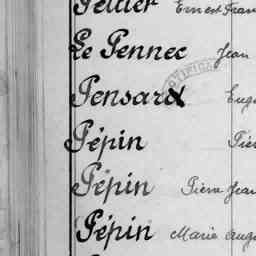 Peltier Ernest Fran
Le Pennec Jean
Pensard Eugè
Pépin Pier
Pépin Pierre Jean
Pépin Marie Augu